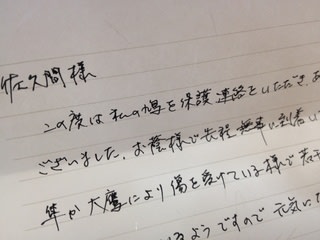 佐久間様
この度は私の鳩を保護連絡をいただき、あ
ございました。お蔭様で先程無事に到着い
隼か大鷹により傷を受けている様で若干
るようですので元気にな